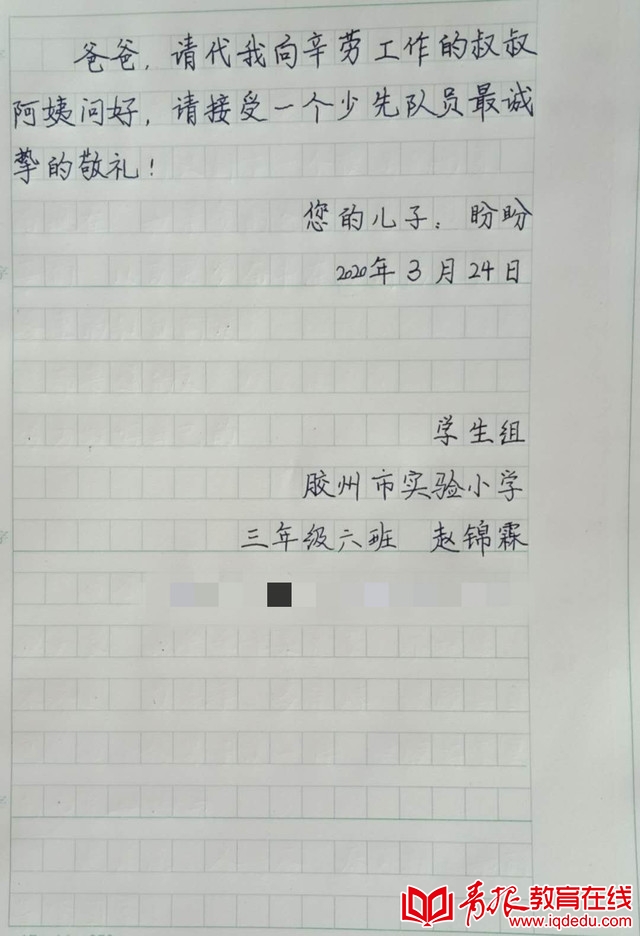 爸爸，请代我向辛劳工作的叔叔
阿姨问好，请接受一个少先队员最诚
挚的敬礼！
您的儿子：盼盼
2020年3月24日
学生组
胶州市实验小学
三年级六班 赵锦霖
青报教育在线
www.iqdedu.com